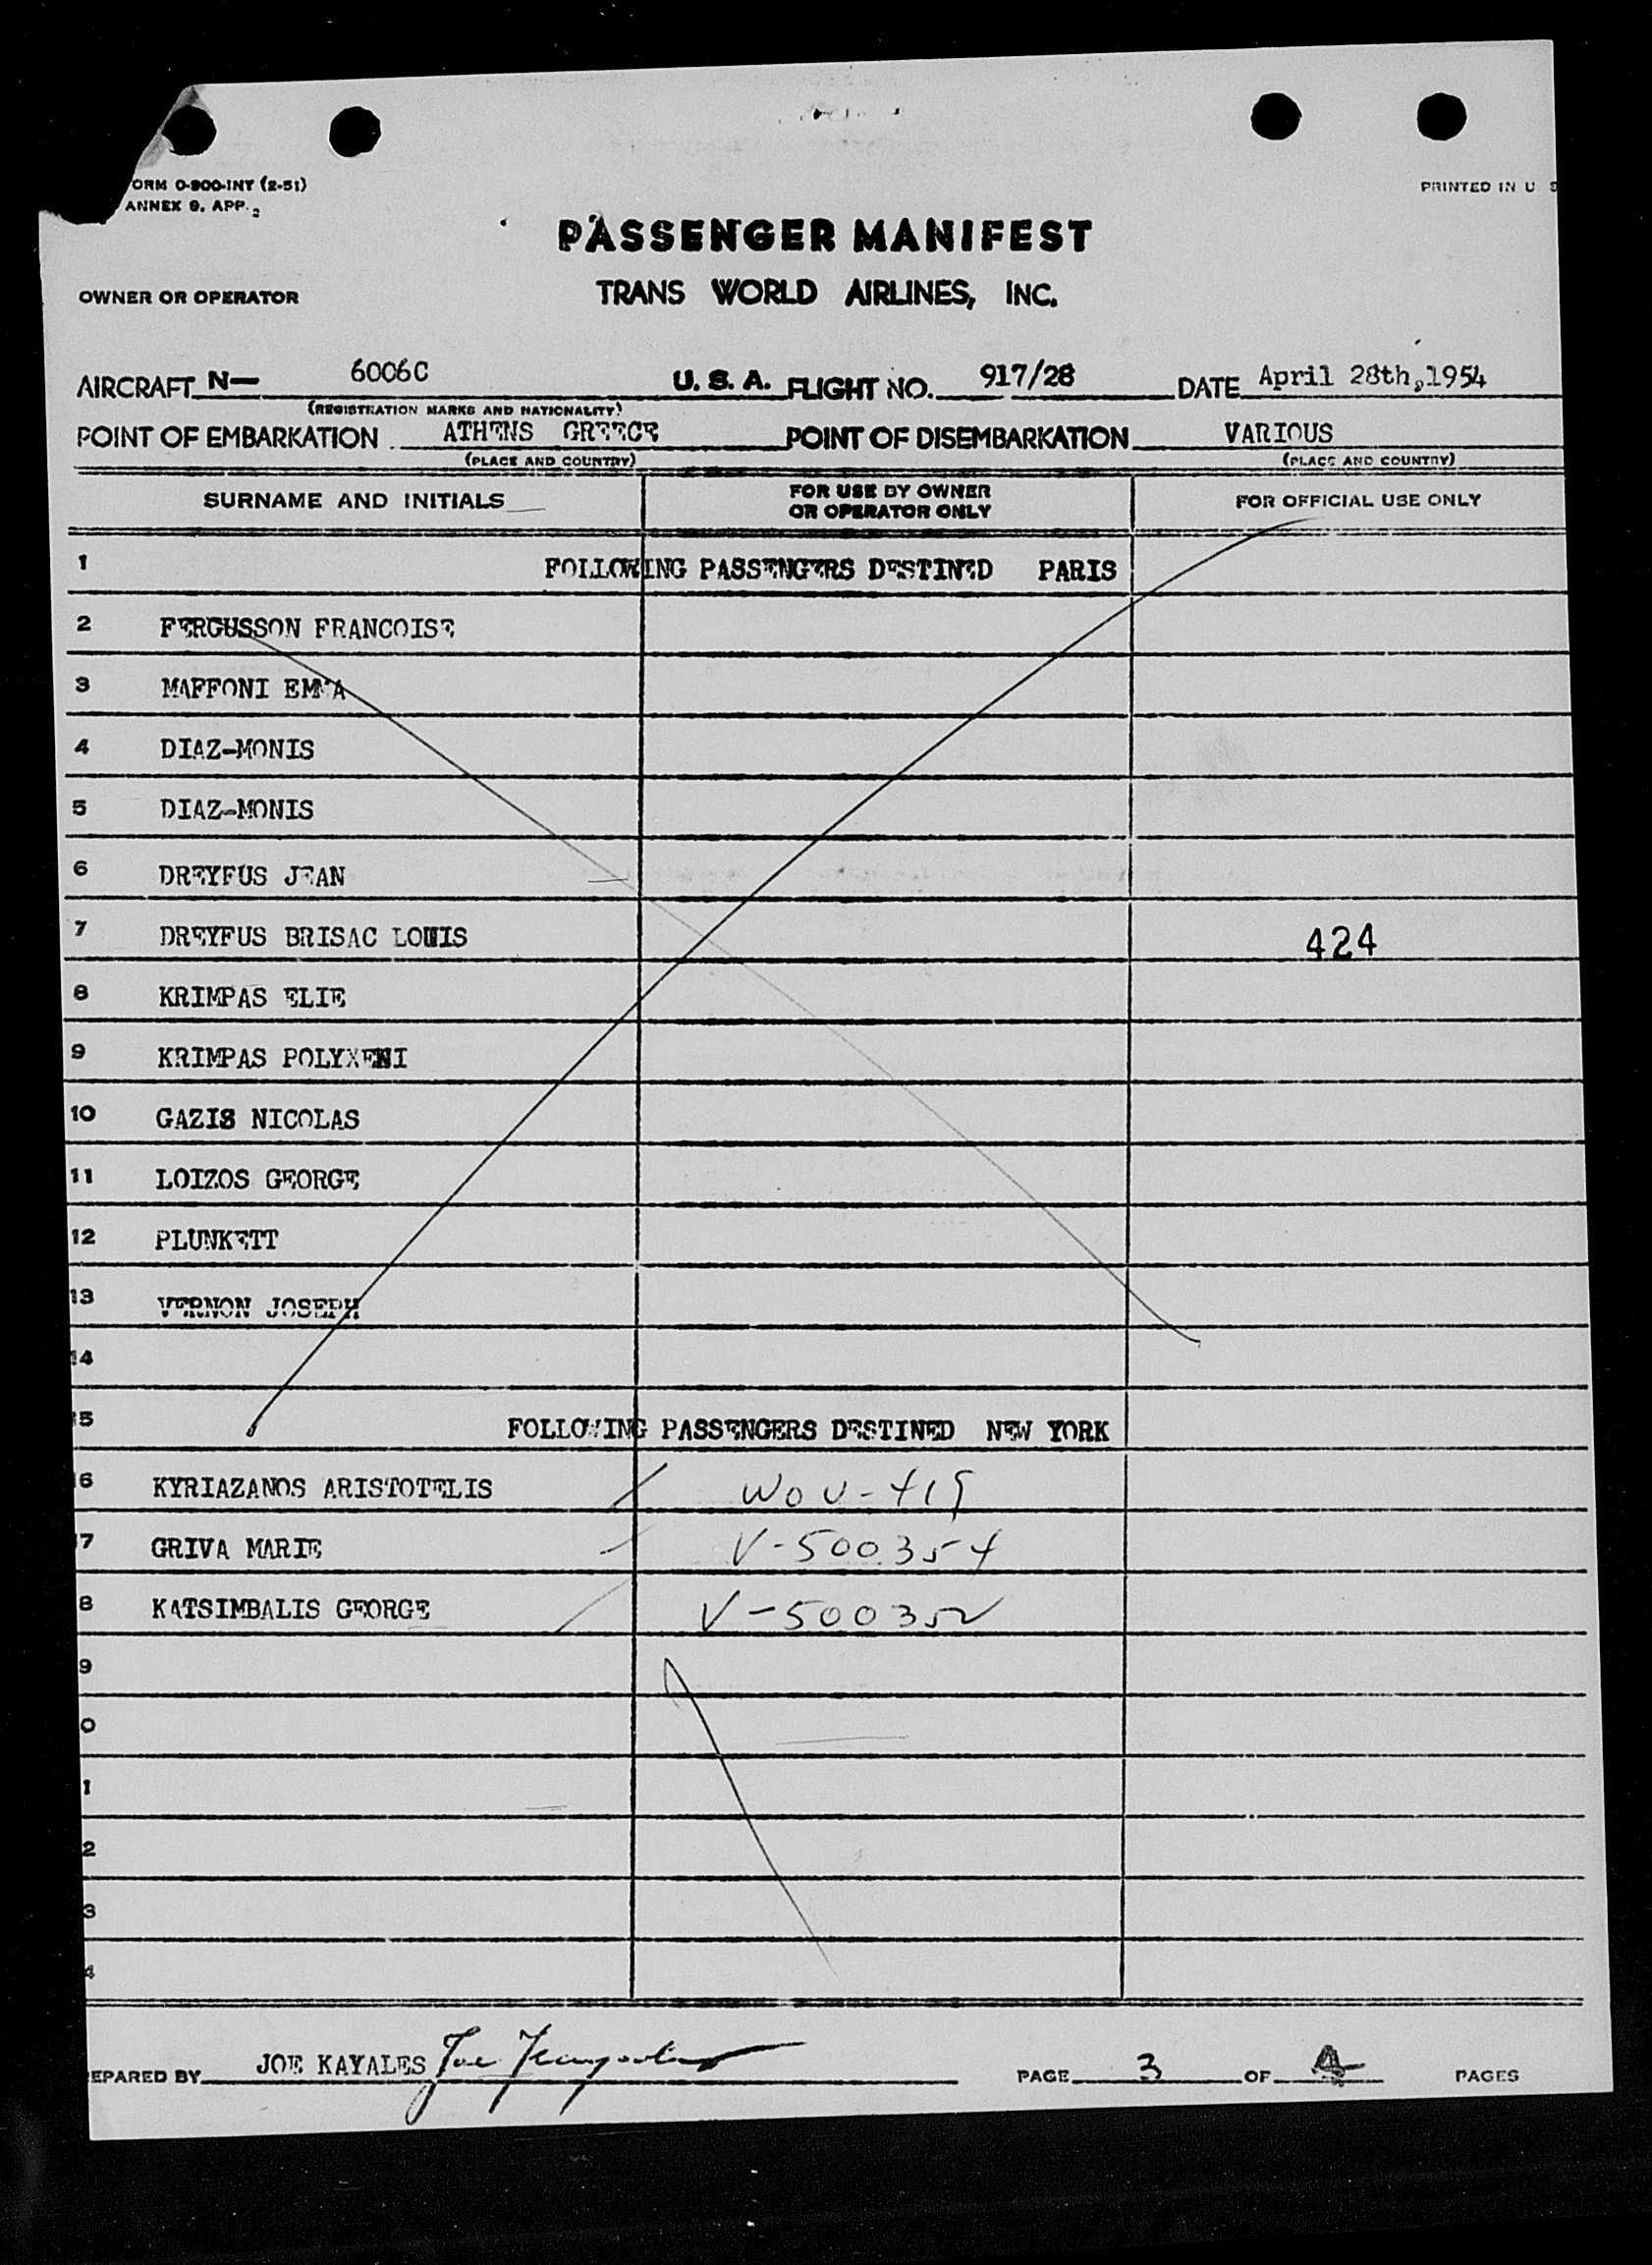 ORM O-800-INT (2-51)
ANNEX 9, APP. 2
PRINTED IN U S
PASSENGER MANIFEST
OWNER OR OPERATOR TRANS WORLD AIRLINES, INC.
AIRCRAFT N— 6006C U. S. A. FLIGHT NO. 917/28 DATE April 28th,1954
(REGISTRATION MARKS AND NATIONALITY)
POINT OF EMBARKATION ATHENS GREECE POINT OF DISEMBARKATION VARIOUS
(PLACE AND COUNTRY) (PLACE AND COUNTRY)
SURNAME AND INITIALS FOR USE BY OWNER OR OPERATOR ONLY FOR OFFICIAL USE ONLY
1 FOLLOWING PASSENGERS DESTINED PARIS
2 FERGUSSON FRANCOISE
3 MAFFONI EMMA
4 DIAZ-MONIS
5 DIAZ-MONIS
6 DREYFUS JEAN
7 DREYFUS BRISAC LOUIS 424
8 KRIMPAS ELIE
9 KRIMPAS POLYXENI
10 GAZIS NICOLAS
11 LOIZOS GEORGE
12 PLUNKETT
13 VERNON JOSEPH
14
15 FOLLOWING PASSENGERS DESTINED NEW YORK
6 KYRIAZANOS ARISTOTELIS
7 GRIVA MARIE V-500354
8 KATSIMBALIS GEORGE V-500352
9
0
1
2
3
4
EPARED BY JOE KAYALES Joe Kayales PAGE 3 OF 4 PAGES